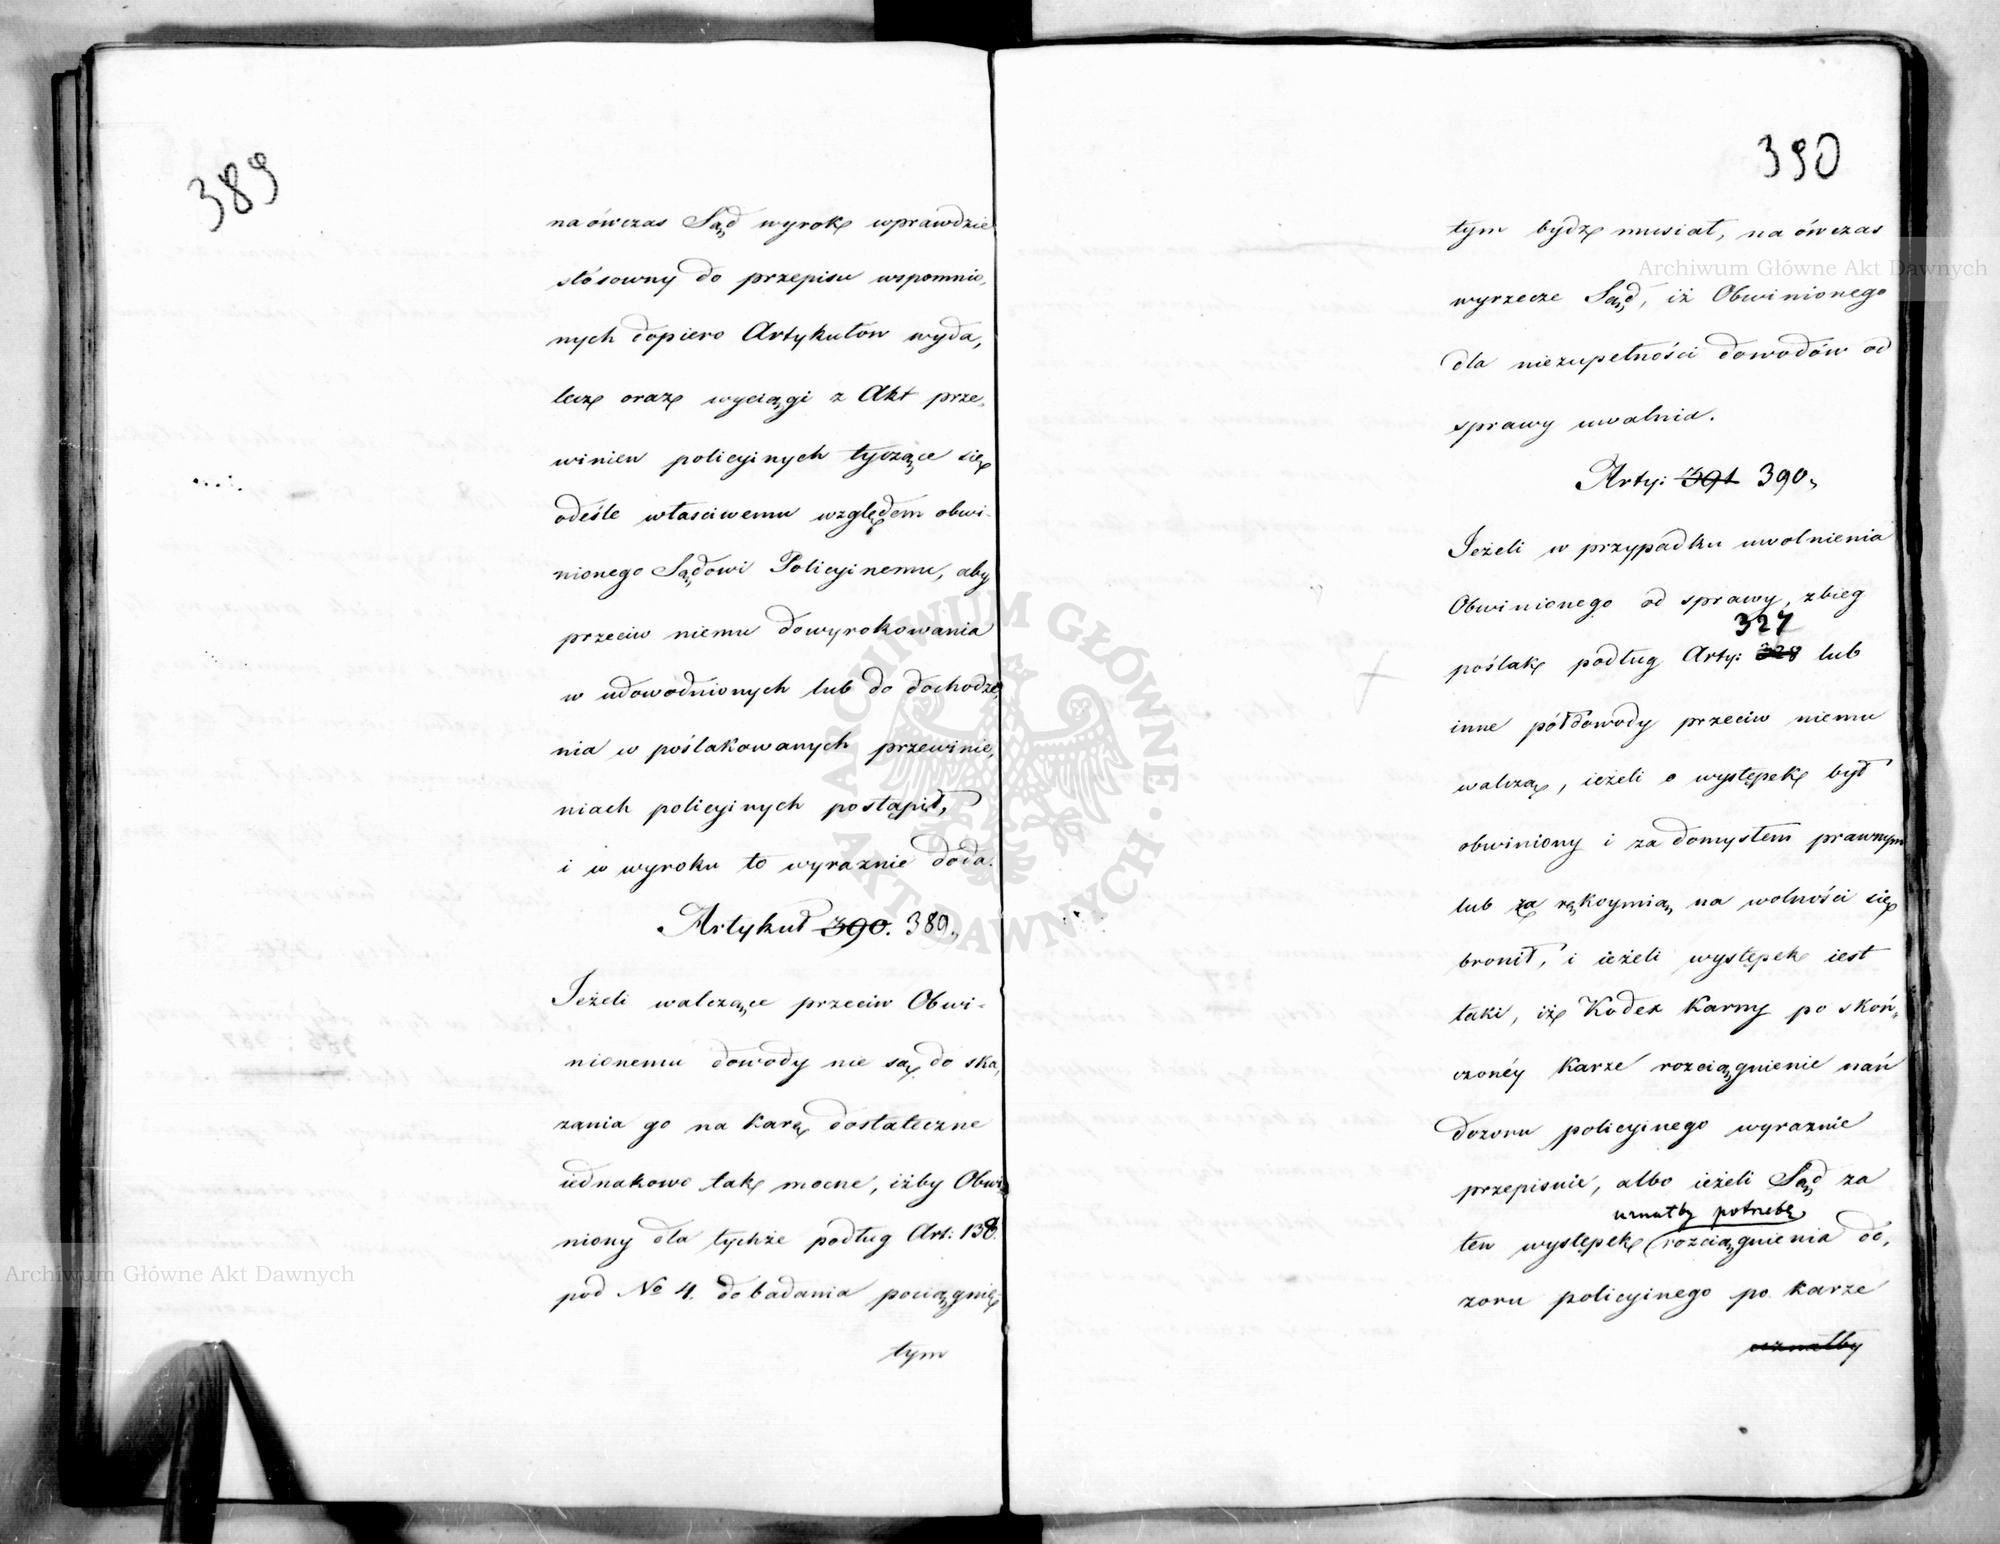 389
na ówczas Sąd wyrok wprawdzie
stósowny do przepisu wspomnio,
nych dopiero Artykułow wyda,
lecz oraz wyciągi z Akt prze-
winien policyinych tyczące się
odeśle własciwemu względem obwi-
nionego Sądowi Policyinemu, aby
przeciw niemu dowyrokowania
w udowodnionych lub do dochodze,
nia w poślakowanych przewinie,
niach policyinych postąpił,
i w wyroku to wyraznie doda.
Artykuł 390. 389.
Jeżeli walczące przeciw Obwi-
nionemu dowody nie są do ska,
zania go na karę dostateczne
iednakowo tak mocne, iżby Obwi,
niony dla tychże podług Art: 138.
pod No 4. do badania pociągnię,
tym
390
tym bydz musiał, na ówczas
wyrzecze Sąd, iż Obwinionego
dla niezupełności dowodów od
sprawy uwalnia.
Arty: 391 390.
Jeżeli w przypadku uwolnienia
Obwinionego od sprawy, zbieg
327
poślak podług Arty: 328 lub
inne półdowody przeciw niemu
walczą, ieżeli o występek był
obwiniony i za domysłem prawnym
lub za rękoymią na wolności się
bronił, i ieżeli występek iest
taki, iż Kodex Karny po skoń-
czonéy karze rozciągnienie nań
dozoru policyinego wyraznie
przepisuie, albo ieżeli Sąd za
uznałby potrzebę
ten występek rozciągnienia do,
zoru policyinego po karze
uznałby
Archiwum Główne Akt Dawnych
Archiwum Główne Akt Dawnych
ARCHIWUM GŁÓWNE AKT DAWNYCH